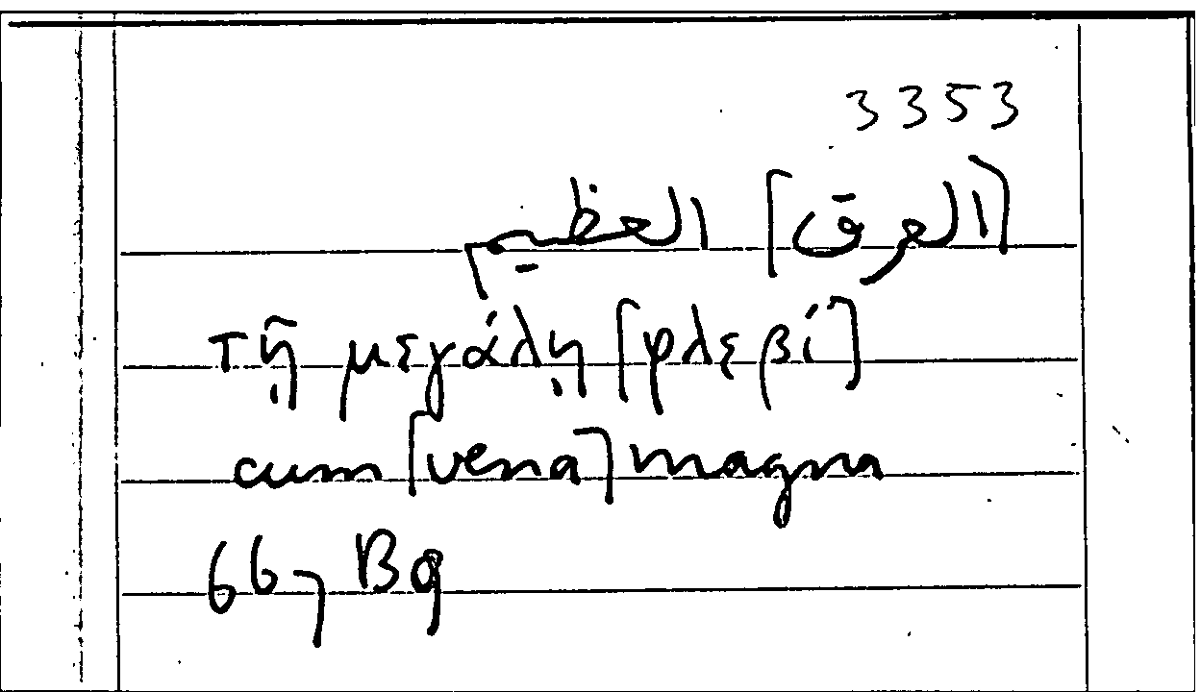 3353
[العرق] العظيم
τῇ μεγάλῃ [φλεβί]
cum [vena] magna
667 B9